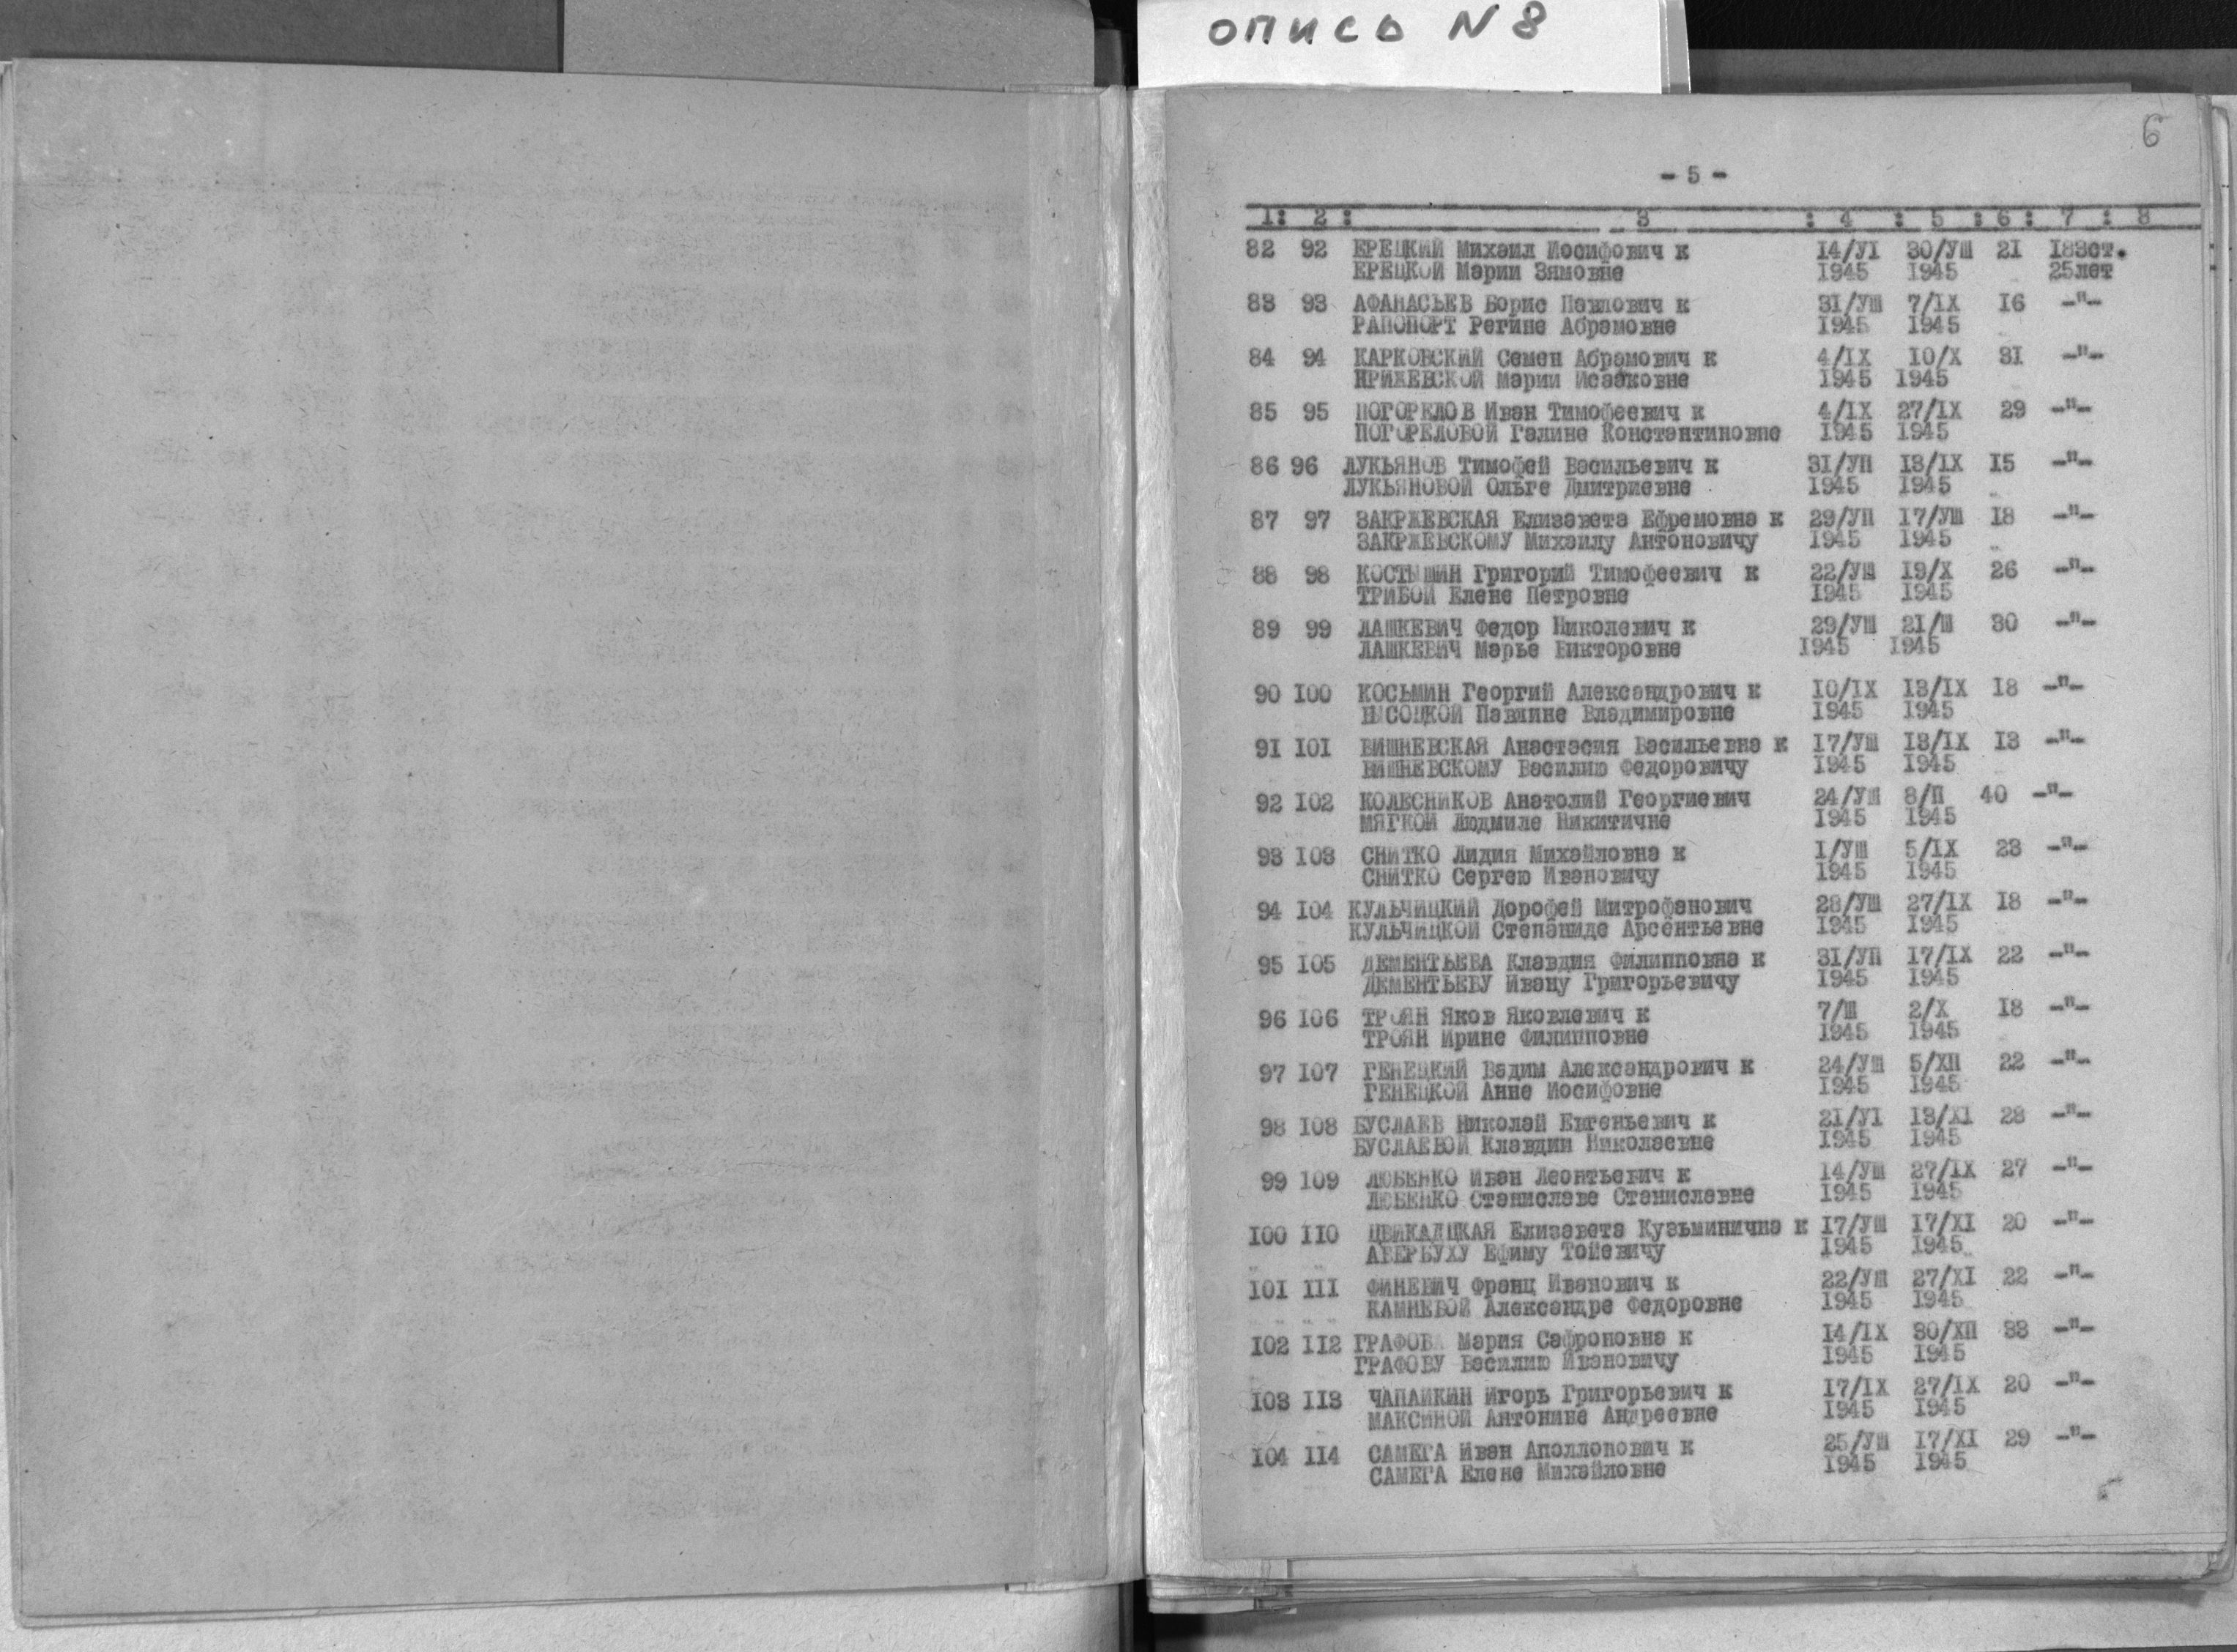 опись N 8
6
- 5 -
1: 2 : 3 : 4 : 5 : 6 : 7 : 8
82 92 ЕРЕЦКИЙ Михаил Иосифович к 14/УІ 30/УШ 21 183ст.
ЕРЕЦКОЙ Марии Зямовне 1945 1945 25лет
83 93 АФАНАСЬЕВ Борис Павлович к 31/УШ 7/ІХ 16 -"-
РАПОПОРТ Регине Абрамовне 1945 1945
84 94 КАРКОВСКИЙ Семен Абрамович к 4/ІХ 10/Х 31 -"-
КРИЖЕВСКОЙ Марии Исааковне 1945 1945
85 95 ПОГОРЕЛОВ Иван Тимофеевич к 4/ІХ 27/ІХ 29 -"-
ПОГОРЕЛОВОЙ Галине Константиновне 1945 1945
86 96 ЛУКЬЯНОВ Тимофей Васильевич к 31/УП 13/ІХ 15 -"-
ЛУКЬЯНОВОЙ Ольге Дмитриевне 1945 1945
87 97 ЗАКРЖЕВСКАЯ Елизавета Ефремовна к 29/УП 17/УШ 18 -"-
ЗАКРЖЕВСКОМУ Михаилу Антоновичу 1945 1945
88 98 КОСТЫШИН Григорий Тимофеевич к 22/УШ 19/Х 26 -"-
ТРИБОЙ Елене Петровне 1945 1945
89 99 ЛАШКЕВИЧ Федор Николевич к 29/УШ 21/Ш 30 -"-
ЛАШКЕВИЧ Марье Викторовне 1945 1945
90 100 КОСЬМИН Георгий Александрович к 10/ІХ 13/ІХ 18 -"-
ВЫСОЦКОЙ Павлине Владимировне 1945 1945
91 101 ВИШНЕВСКАЯ Анастасия Васильевна к 17/УШ 13/ІХ 13 -"-
ВИШНЕВСКОМУ Василию Федоровичу 1945 1945
92 102 КОЛЕСНИКОВ Анатолий Георгиевич 24/УШ 8/П 40 -"-
МЯГКОЙ Людмиле Никитичне 1945 1945
93 103 СНИТКО Лидия Михайловна к 1/УШ 5/ІХ 23 -"-
СНИТКО Сергею Ивановичу 1945 1945
94 104 КУЛЬЧИЦКИЙ Дорофей Митрофанович 28/УШ 27/ІХ 18 -"-
КУЛЬЧИЦКОЙ Степаниде Арсентьевне 1945 1945
95 105 ДЕМЕНТЬЕВА Клавдия Филипповна к 31/УП 17/ІХ 22 -"-
ДЕМЕНТЬЕВУ Ивану Григорьевичу 1945 1945
96 106 ТРОЯН Яков Яковлевич к 7/Ш 2/Х 18 -"-
ТРОЯН Ирине Филипповне 1945 1945
97 107 ГЕНЕЦКИЙ Вадим Александрович к 24/УШ 5/ХП 22 -"-
ГЕНЕЦКОЙ Анне Иосифовне 1945 1945
98 108 БУСЛАЕВ Николай Евгеньевич к 21/УІ 13/ХІ 28 -"-
БУСЛАЕВОЙ Клавдии Николаевне 1945 1945
99 109 ЛЮБЕНКО Иван Леонтьевич к 14/УШ 27/ІХ 27 -"-
ЛЮБЕНКО Станиславе Станиславне 1945 1945
100 110 ЦВИКАДЦКАЯ Елизавета Кузьминична к 17/УШ 17/ХІ 20 -"-
АВЕРБУХУ Ефиму Тойевичу 1945 1945
101 111 ФИНЕВИЧ Франц Иванович к 22/УШ 27/ХІ 22 -"-
КАМНЕВОЙ Александре Федоровне 1945 1945
102 112 ГРАФОВА Мария Сафроновна к 14/ІХ 30/ХП 33 -"-
ГРАФОВУ Василию Ивановичу 1945 1945
103 113 ЧАПАЙКИН Игорь Григорьевич к 17/ІХ 27/ІХ 20 -"-
МАКСИНОЙ Антонине Андреевне 1945 1945
104 114 САМЕГА Иван Аполлонович к 25/УШ 17/ХІ 29 -"-
САМЕГА Елене Михайловне 1945 1945